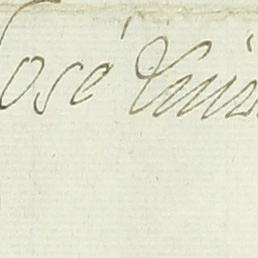 José Luis